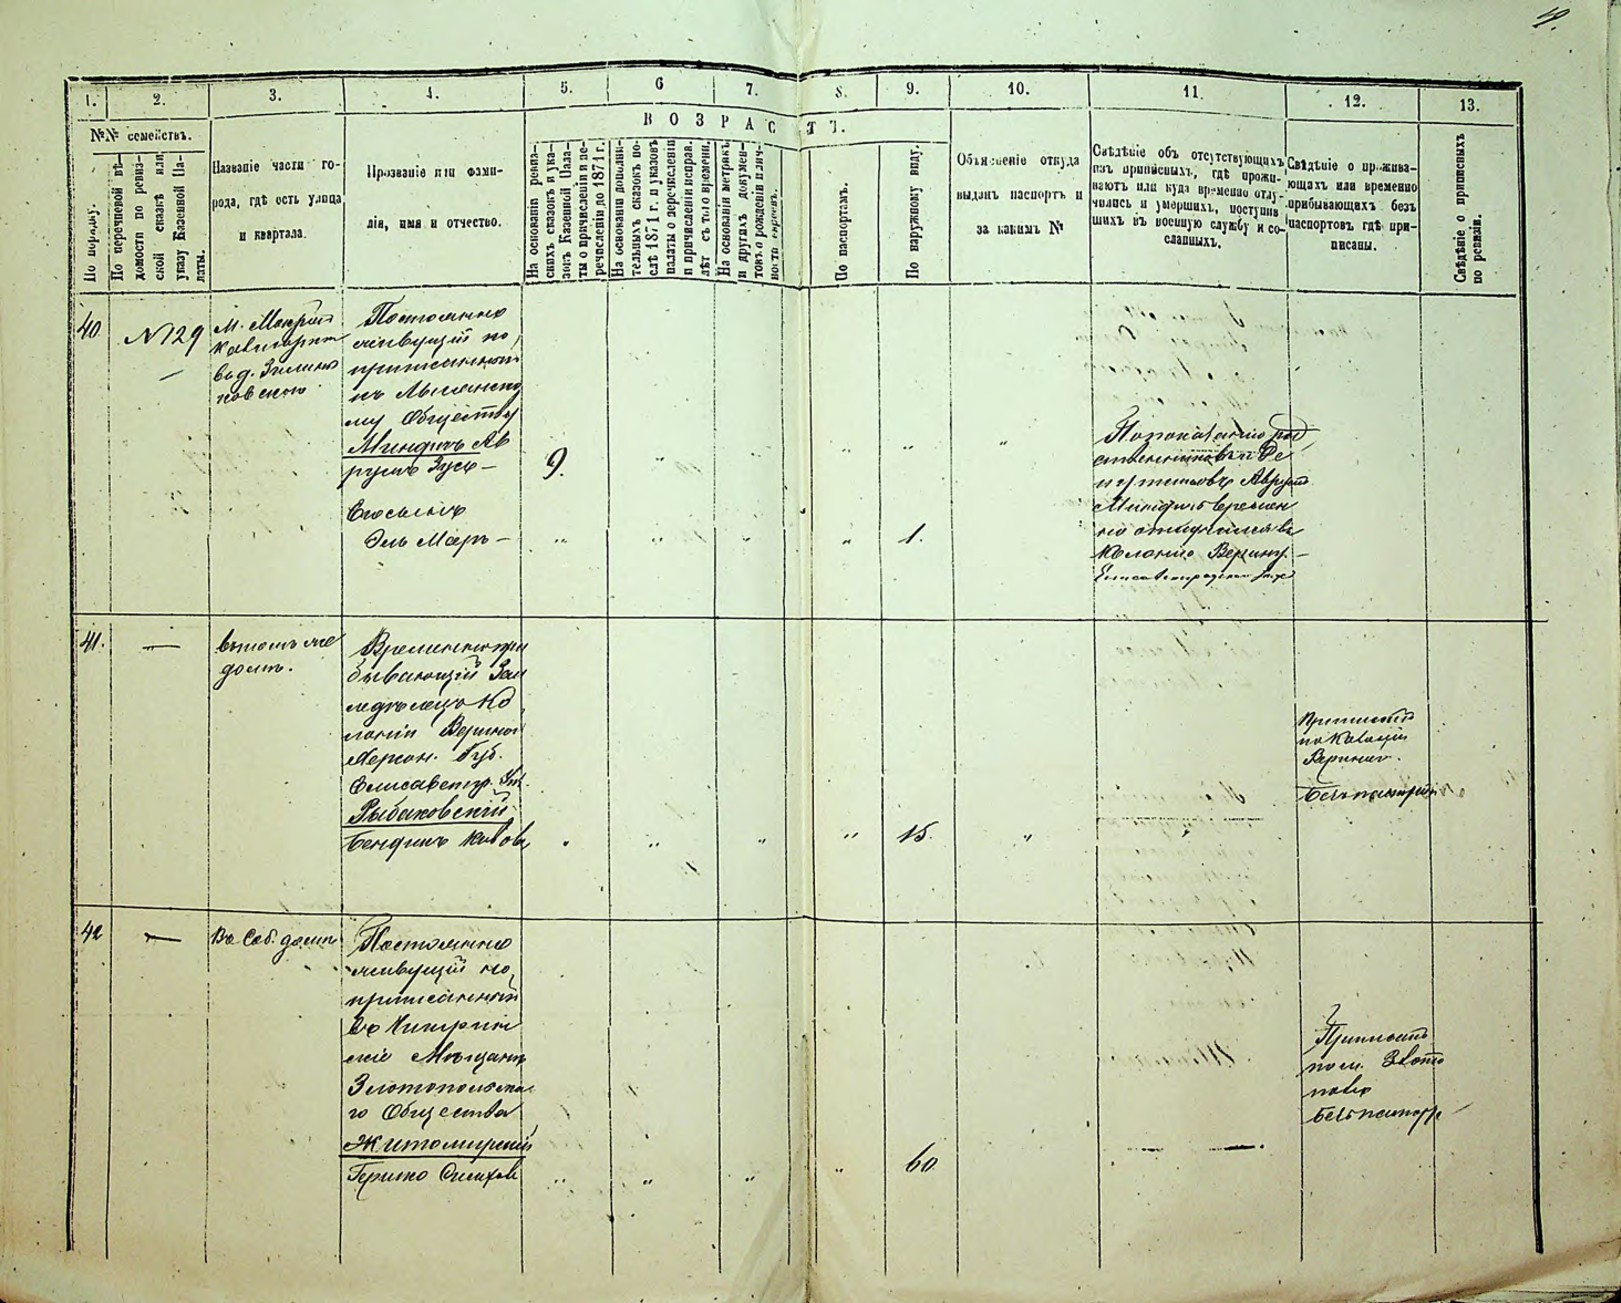 1.
2.
3.
4.
5.
6
7.
8.
9.
10.
11.
12.
13.
№№ семействъ.
ВОЗРАСТЪ.
По порядку.
По перечневой вѣ-
домости по ревиз-
ской сказкѣ или
указу Казенной Па-
латы.
Названіе части го-
рода, гдѣ есть улица
и квартала.
Прозваніе или фами-
лія, имя и отчество.
На основаніи ревиз-
скихъ сказокъ и ука-
зовъ Казенной Пала-
ты о причисленіи и пе-
речисленіи до 1871 г.
На основаніи дополни-
тельныхъ сказокъ по-
слѣ 1871 г. и указовъ
палаты о перечисленіи
и причисленіи исправ.
лѣтъ съ того времени.
На основаніи метрикъ
и другихъ докумен-
товъ о рожденіи и лич-
ности евреевъ.
По паспортамъ.
По наружному виду.
Объясненіе откуда
выданъ паспортъ и
за какимъ №
Свѣдѣніе объ отсутствующихъ
изъ приписныхъ, гдѣ прожи-
ваютъ или куда временно отлу-
чились и умершихъ, поступив
шихъ въ военную службу и со-
сланныхъ.
Свѣдѣніе о прожива-
ющахъ или временно
прибывающихъ безъ
паспортовъ гдѣ при-
писаны.
Свѣдѣніе о приписныхъ
по ревизіи.
40
№129
М. Мокрой
въ д.
Постоянно
живущій но
приписанный
къ Лысянско
му Обществу
Миндичъ Ав
румъ Зусь —
9.
Его сынъ
Эль Меръ —
1.
По показанію род
ственниковъ и Де
путатовъ Аврумъ
Миндичъ времен
но отлучился въ
Колонію
41.
—
въ томъ же
домѣ.
Временно при
бывающій Зем
ледѣлецъ Ко
лоніи
Херсон. Губ.
Елисаветгр. Уѣз.
Рыбаковскій
15.
Приписанъ
по Колоніи
безъ паспорта
42
—
Въ Соб. домѣ
Постоянно
живущій но
приписанный
въ Чигирин
скіе Мѣщане
Златопольска
го Общества
Житомирскій
Гершко
60
Приписанъ
по м. Злато
полю
безъ паспорт